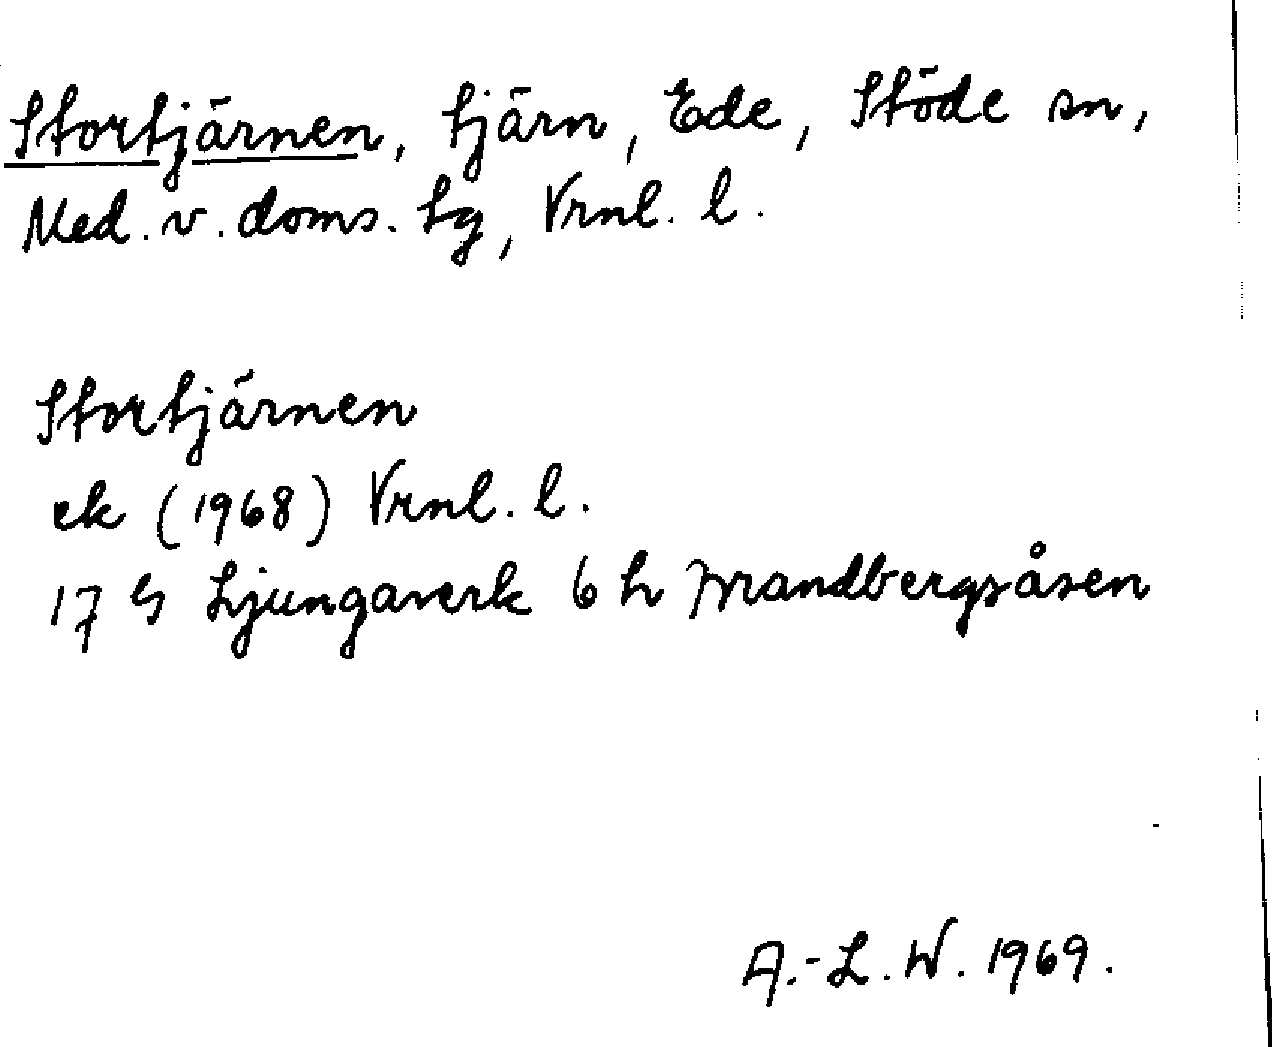 Stortjärnen, tjärn, Ede, Stöde sn,
Med. v. doms. tg, Vrnl. l.
Stortjärnen
ek (1968) Vrnl. l.
17 G Ljungaverk 6 h Brandbergsåsen
A.-L. W. 1969.